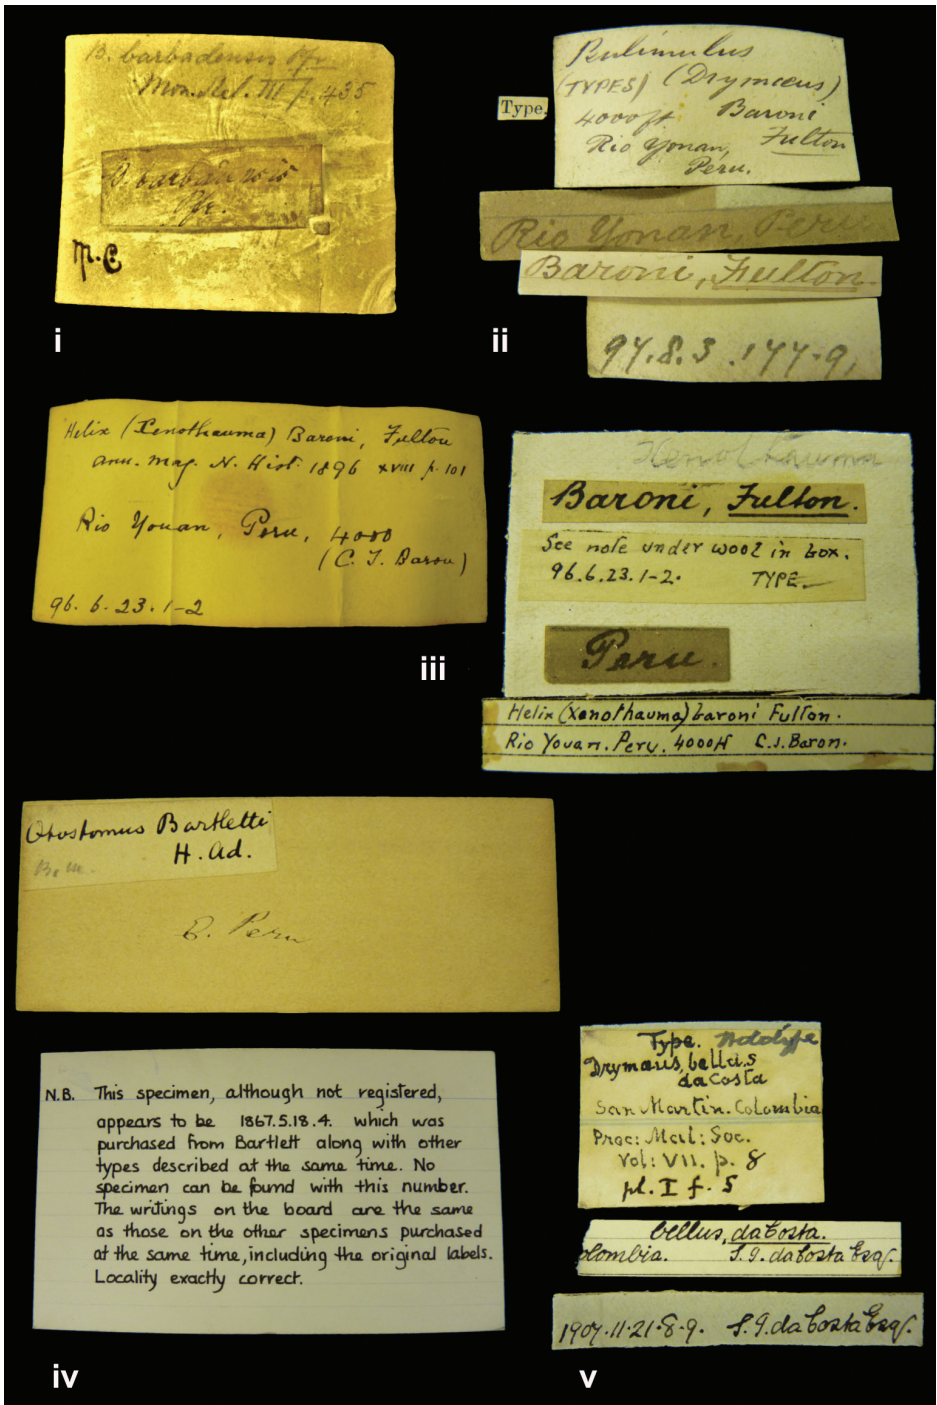 B. barbadensis Pfr
Mon. Hel. III p. 435
B. barbadensis
Pfr.
M.C
i
Type.
Bulimulus
(TYPES) (Drymæus)
4000 ft Baroni
Rio Yonan, Fulton
Peru.
Rio Yonan, Peru
Baroni, Fulton.
97.8.3.177-9.
ii
Helix (Xenothauma) Baroni, Fulton
Ann. Mag. N. Hist. 1896 xviii p. 101
Rio Youan, Peru, 4000
(C. J. Baron)
96. 6. 23. 1-2
Xenothauma
Baroni, Fulton.
See note under wool in box.
96.6.23.1-2. TYPE
Peru.
Helix (Xenothauma) baroni Fulton.
Rio Youan. Peru. 4000ft C.J. Baron.
iii
Otostomus Bartletti
H. Ad.
B.M.
E. Peru
N.B. This specimen, although not registered,
appears to be 1867.5.18.4. which was
purchased from Bartlett along with other
types described at the same time. No
specimen can be found with this number.
The writings on the board are the same
as those on the other specimens purchased
at the same time, including the original labels.
Locality exactly correct.
iv
Type.
Drymæus bellus
da Costa
San Martin. Colombia
Proc: Mal: Soc.
Vol: VII. p. 8
pl. I f. 5
bellus, da Costa.
olombia. S. I. da Costa Esq.
1907.11.21.8-9. S. I. da Costa Esq.
v